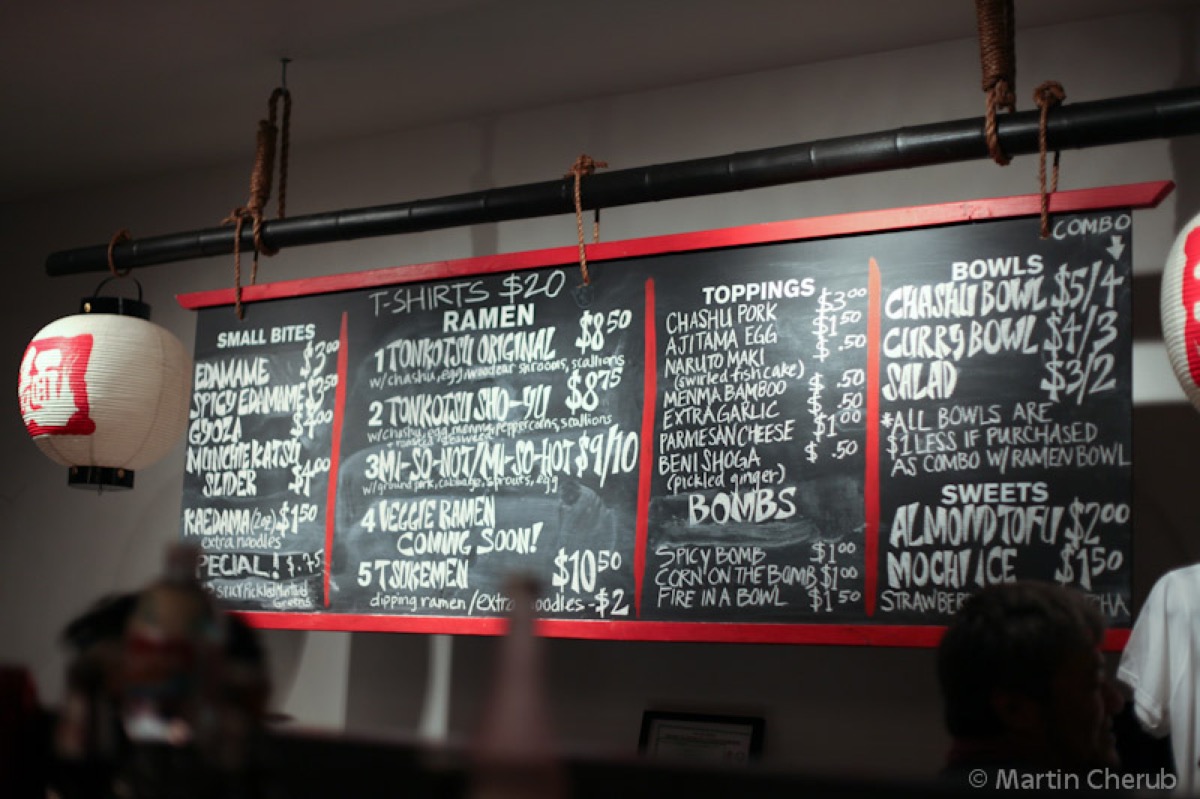 T-SHIRTS $20
SMALL BITES
EDAMAME $3.00
SPICY EDAMAME $3.50
GYOZA $4.00
MUNCHIE KATSU
SLIDER
KAEDAMA (2oz) $1.50
extra noodles
SPECIAL!
Greens
RAMEN
1 TONKOTSU ORIGINAL $8.50
w/chashu, egg, woodear shrooms, scallions
2 TONKOTSU SHO-YU $8.75
w/chashu, egg, menma, peppercorns, scallions
3 MI-SO-NOT/MI-SO-HOT $9/10
w/ground pork, cabbage, sprouts, egg
4 VEGGIE RAMEN
COMING SOON!
5 TSUKEMEN $10.50
dipping ramen/extra noodles -$2
TOPPINGS
CHASHU PORK $3.00
AJITAMA EGG $1.50
NARUTO MAKI $.50
(swirled fish cake)
MENMA BAMBOO $.50
EXTRA GARLIC $.50
PARMESAN CHEESE $1.00
BENI SHOGA $.50
(pickled ginger)
BOMBS
SPICY BOMB $1.00
CORN ON THE BOMB $1.00
FIRE IN A BOWL $1.50
COMBO
BOWLS
CHASHU BOWL $5/4
CURRY BOWL $4/3
SALAD $3/2
*ALL BOWLS ARE
$1 LESS IF PURCHASED
AS COMBO W/RAMEN BOWL
SWEETS
ALMOND TOFU $2.00
MOCHI ICE $1.50
© Martin Cherub